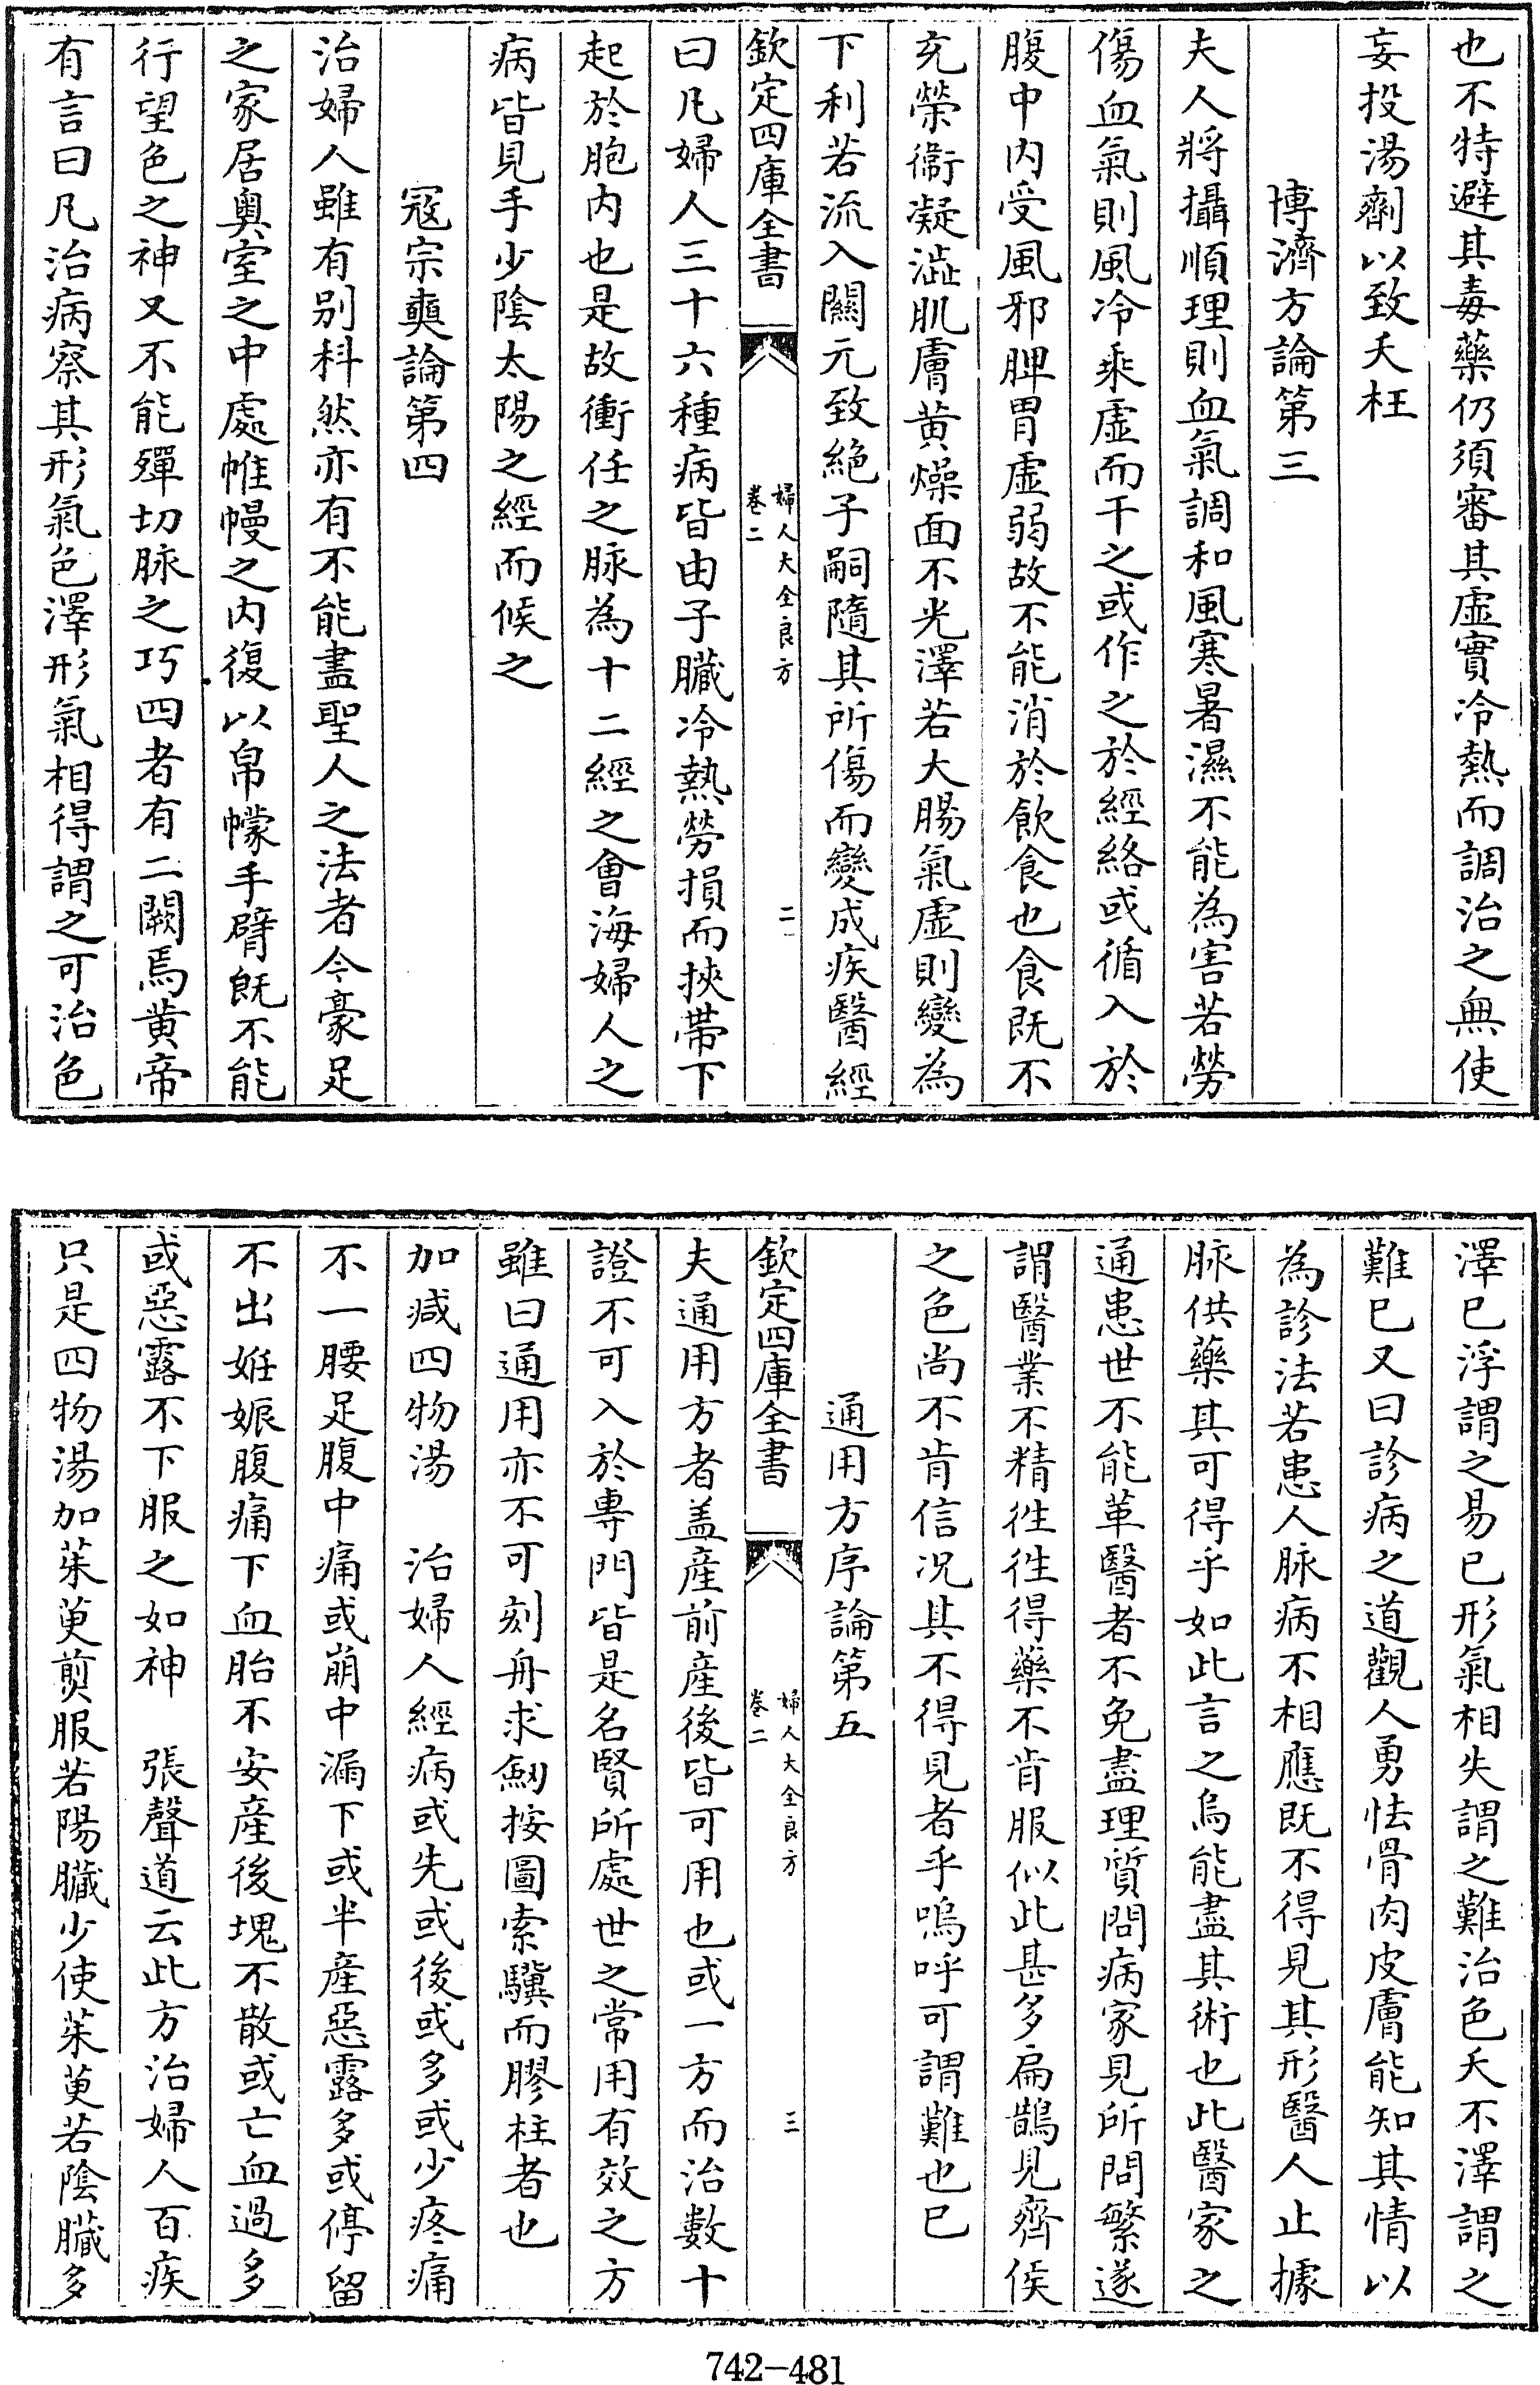 也不特避其毒藥仍須審其虛實冷熱而調治之無使
妄投湯劑以致夭枉
博濟方論第三
夫人將攝順理則血氣調和風寒暑濕不能為害若勞
傷血氣則風冷乘虛而干之或作之於經絡或循入於
腹中内受風邪脾胃虛弱故不能消於飲食也食既不
充榮衞凝澁肌膚黄燥面不光澤若大腸氣虛則變為
下利若流入關元致絶子嗣隨其所傷而變成疾醫經
欽定四庫全書
婦人大全良方
卷二
二
曰凡婦人三十六種病皆由子臟冷熱勞損而挾帶下
起於胞内也是故衝任之脉為十二經之會海婦人之
病皆見手少陰太陽之經而候之
寇宗奭論第四
治婦人雖有别科然亦有不能盡聖人之法者今豪足
之家居奥室之中處帷幔之内復以帛幪手臂既不能
行望色之神又不能殫切脉之巧四者有二闕焉黄帝
有言曰凡治病察其形氣色澤形氣相得謂之可治色
澤已浮謂之易已形氣相失謂之難治色夭不澤謂之
難已又曰診病之道觀人勇怯骨肉皮膚能知其情以
為診法若患人脉病不相應既不得見其形醫人止據
脉供藥其可得乎如此言之烏能盡其術也此醫家之
通患世不能革醫者不免盡理質問病家見所問繁遂
謂醫業不精徃徃得藥不肯服似此甚多扁鵲見齊侯
之色尚不肯信况其不得見者乎嗚呼可謂難也已
通用方序論第五
欽定四庫全書
婦人大全良方
卷二
三
夫通用方者盖産前産後皆可用也或一方而治數十
證不可入於專門皆是名賢所處世之常用有效之方
雖曰通用亦不可刻舟求劒按圖索驥而膠柱者也
加减四物湯　治婦人經病或先或後或多或少疼痛
不一腰足腹中痛或崩中漏下或半産惡露多或停留
不出妊娠腹痛下血胎不安産後塊不散或亡血過多
或惡露不下服之如神　張聲道云此方治婦人百疾
只是四物湯加茱萸煎服若陽臟少使茱萸若陰臟多
742-481